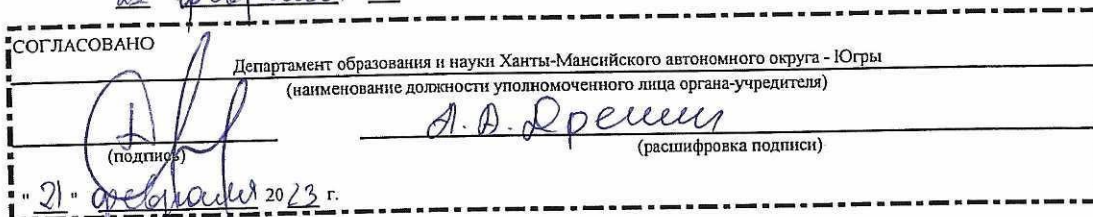 СОГЛАСОВАНО
Департамент образования и науки Ханты-Мансийского автономного округа - Югры
(наименование должности уполномоченного лица органа-учредителя)
А. А. Дренин
(подпись) (расшифровка подписи)
" 21 " февраля 2023 г.